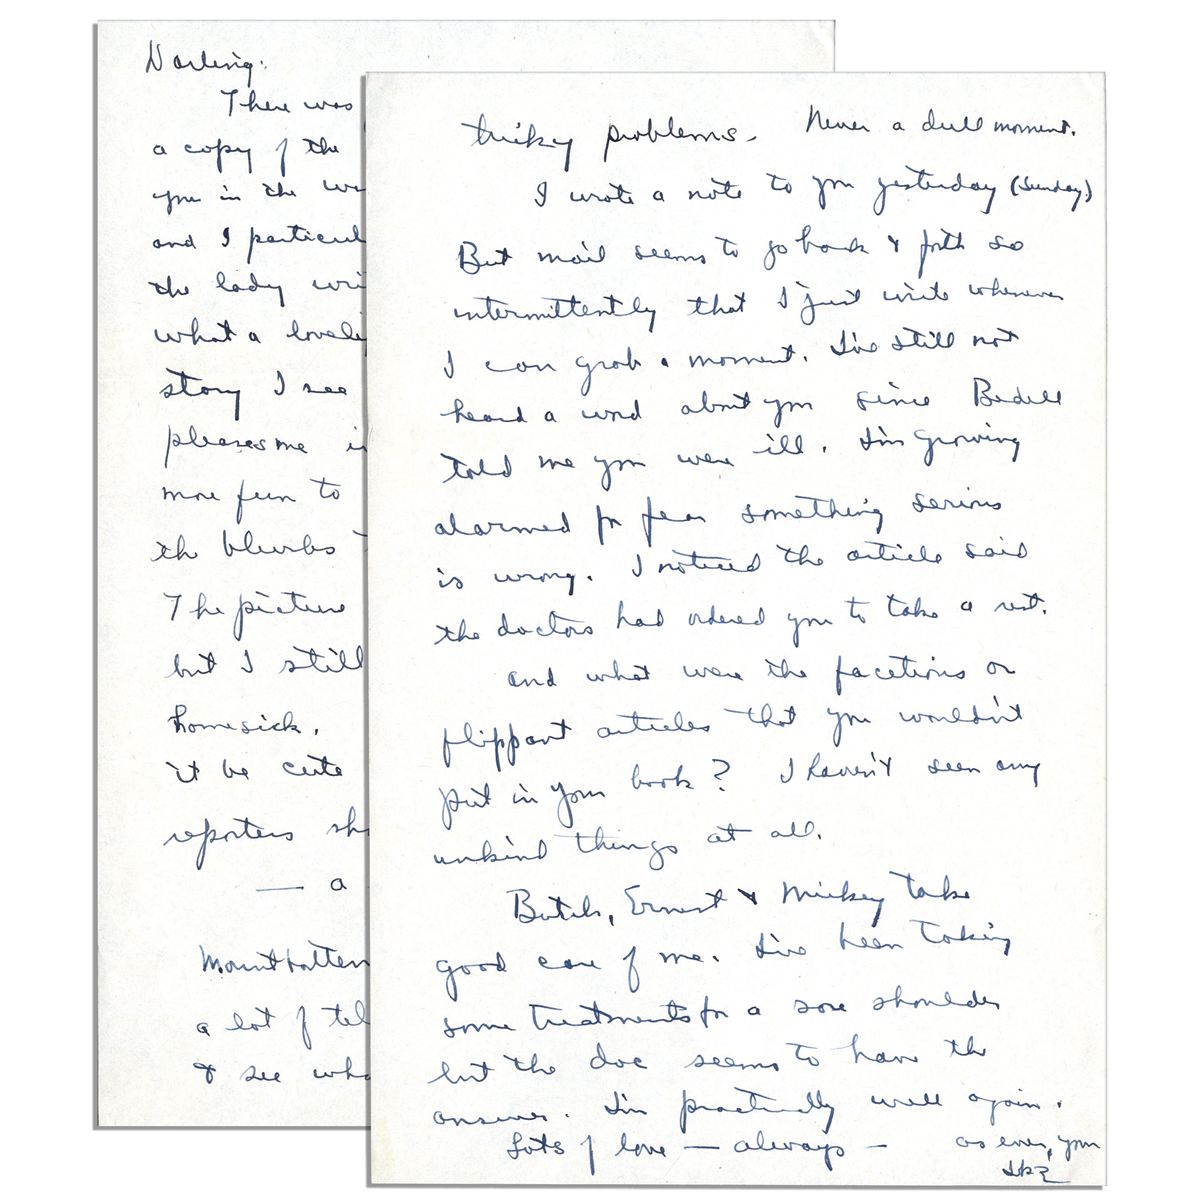 Darling:
There was
a copy of the
you in the
and I particul
the lady wri
what a lovel
story I see
pleases me i
more fun to
the blurbs
The picture
but I still
homesick.
it be cute
reporters sh
— a
Mountbatten
a lot of tel
& see wha
tricky problems. Never a dull moment.
I wrote a note to you yesterday (Sunday.)
But mail seems to go back & forth so
intermittently that I just write whenever
I can grab a moment. I've still not
heard a word about you since Bedell
told me you were ill. I'm growing
alarmed for fear something serious
is wrong. I noticed the article said
the doctors had ordered you to take a rest.
and what were the facetious or
flippant articles that you wouldn't
put in your book? I haven't seen any
unkind things at all.
Butch, Ernest & Mickey take
good care of me. I've been taking
some treatments for a sore shoulder
but the doc seems to have the
answer. I'm practically well again.
Lots of love — always — as ever, your
Ike